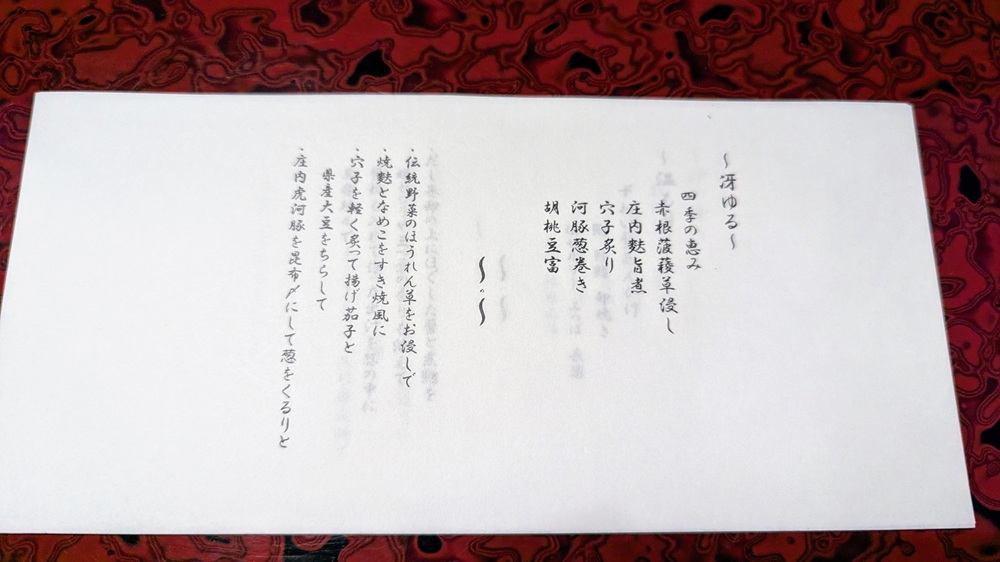 〜冴ゆる〜
四季の恵み
赤根菠薐草浸し
庄内麩旨煮
穴子炙り
河豚葱巻き
胡桃豆富
・伝統野菜のほうれん草をお浸しで
・焼麩となめこをすき焼風に
・穴子を軽く炙って揚げ茄子と
県産大豆をちらして
・庄内虎河豚を昆布〆にして葱をくるりと